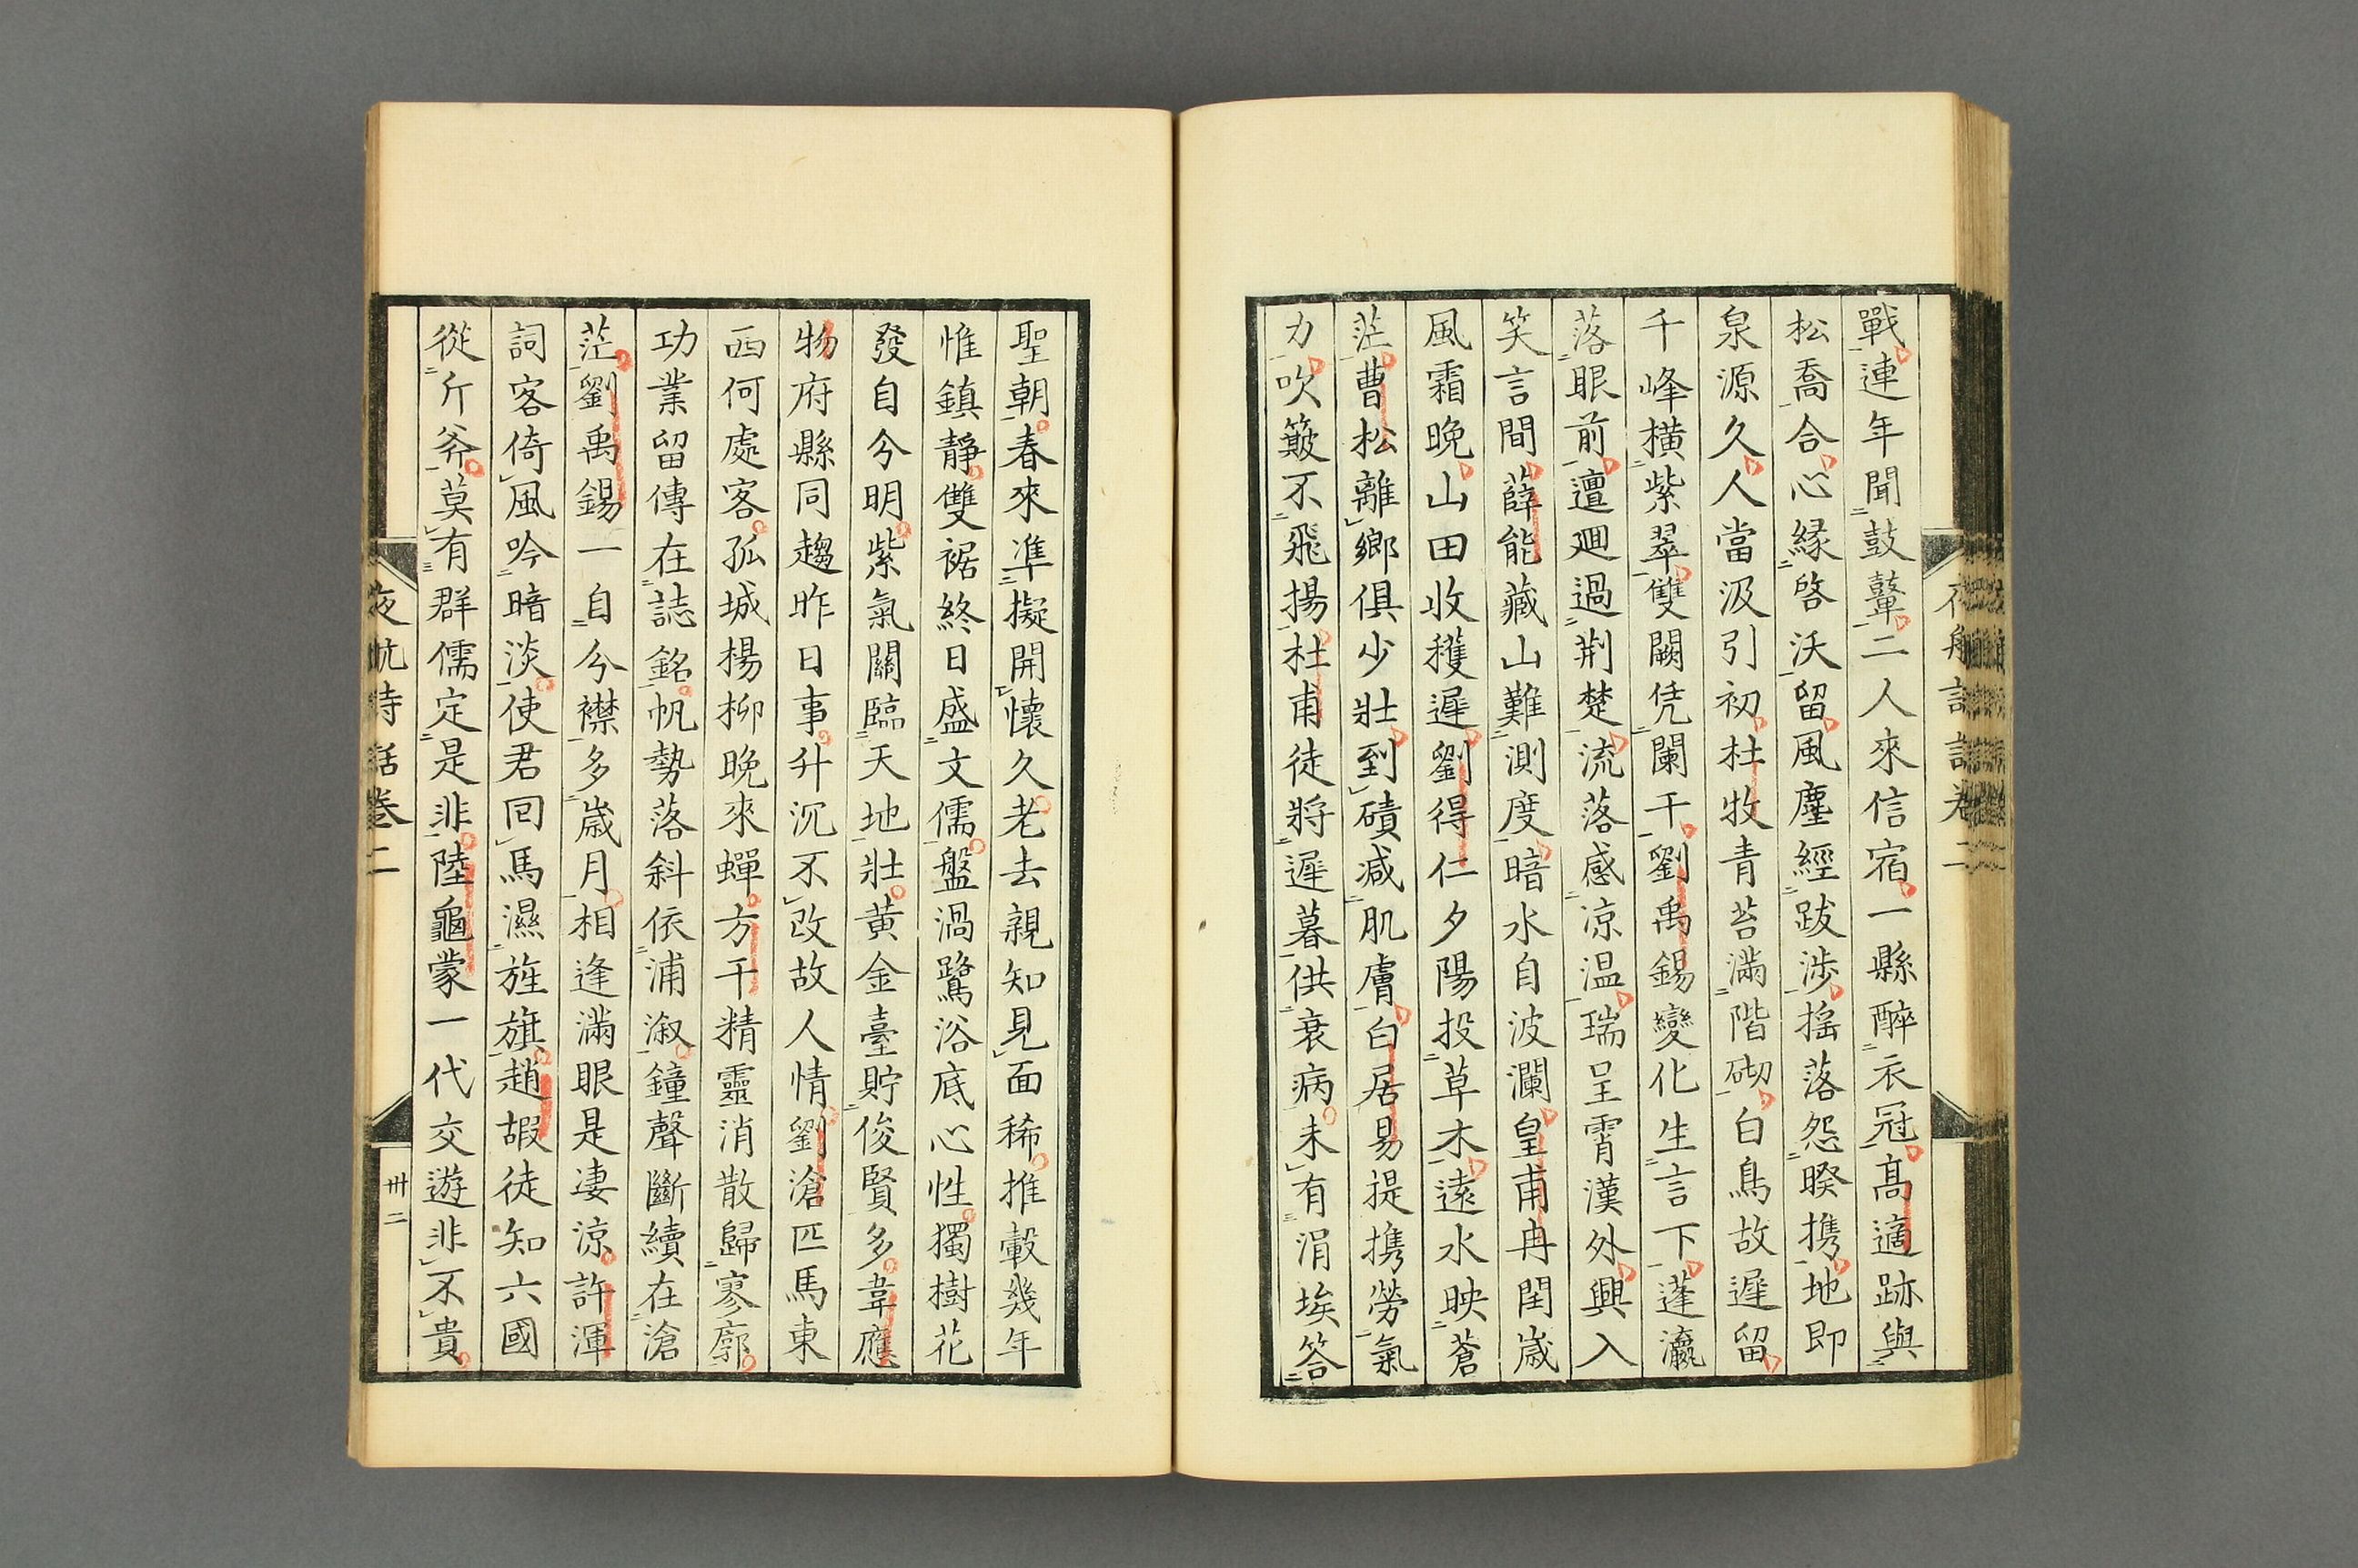 戰連年聞鼓鼙二人來信宿一縣醉衣冠高適跡與
松喬合心縁啓沃留風塵經跋涉搖落怨暌携地即
泉源久人當汲引初杜牧青苔滿階砌白鳥故遲留
千峰橫紫翠雙闕凭闌干劉禹錫變化生言下蓬瀛
落眼前邅迴過荆楚流落感凉温瑞呈霄漢外興入
笑言間薛能藏山難測度暗水自波瀾皇甫冉閏歳
風霜晚山田收穫遲劉得仁夕陽投草木遠水映蒼
茫曹松離鄉俱少壯到磧減肌膚白居易提携勞氣
力吹簸不飛揚杜甫徒將遲暮供衰病未有涓埃答
聖朝春來準擬開懷久老去親知見面稀推轂幾年
惟鎮靜雙裾終日盛文儒盤渦鷺浴底心性獨樹花
發自分明紫氣關臨天地壯黄金臺貯俊賢多韋應
物府縣同趨昨日事升沉不改故人情劉滄匹馬東
西何處客孤城楊柳晚來蟬方干精靈消散歸寥廓
功業留傳在誌銘帆勢落斜依浦溆鐘聲斷續在滄
茫劉禹錫一自分襟多歳月相逢滿眼是凄涼許渾
詞客倚風吟暗淡使君回馬濕旌旗趙嘏徒知六國
從斤斧莫有群儒定是非陸龜蒙一代交遊非不貴
夜航詩話卷二
卅二